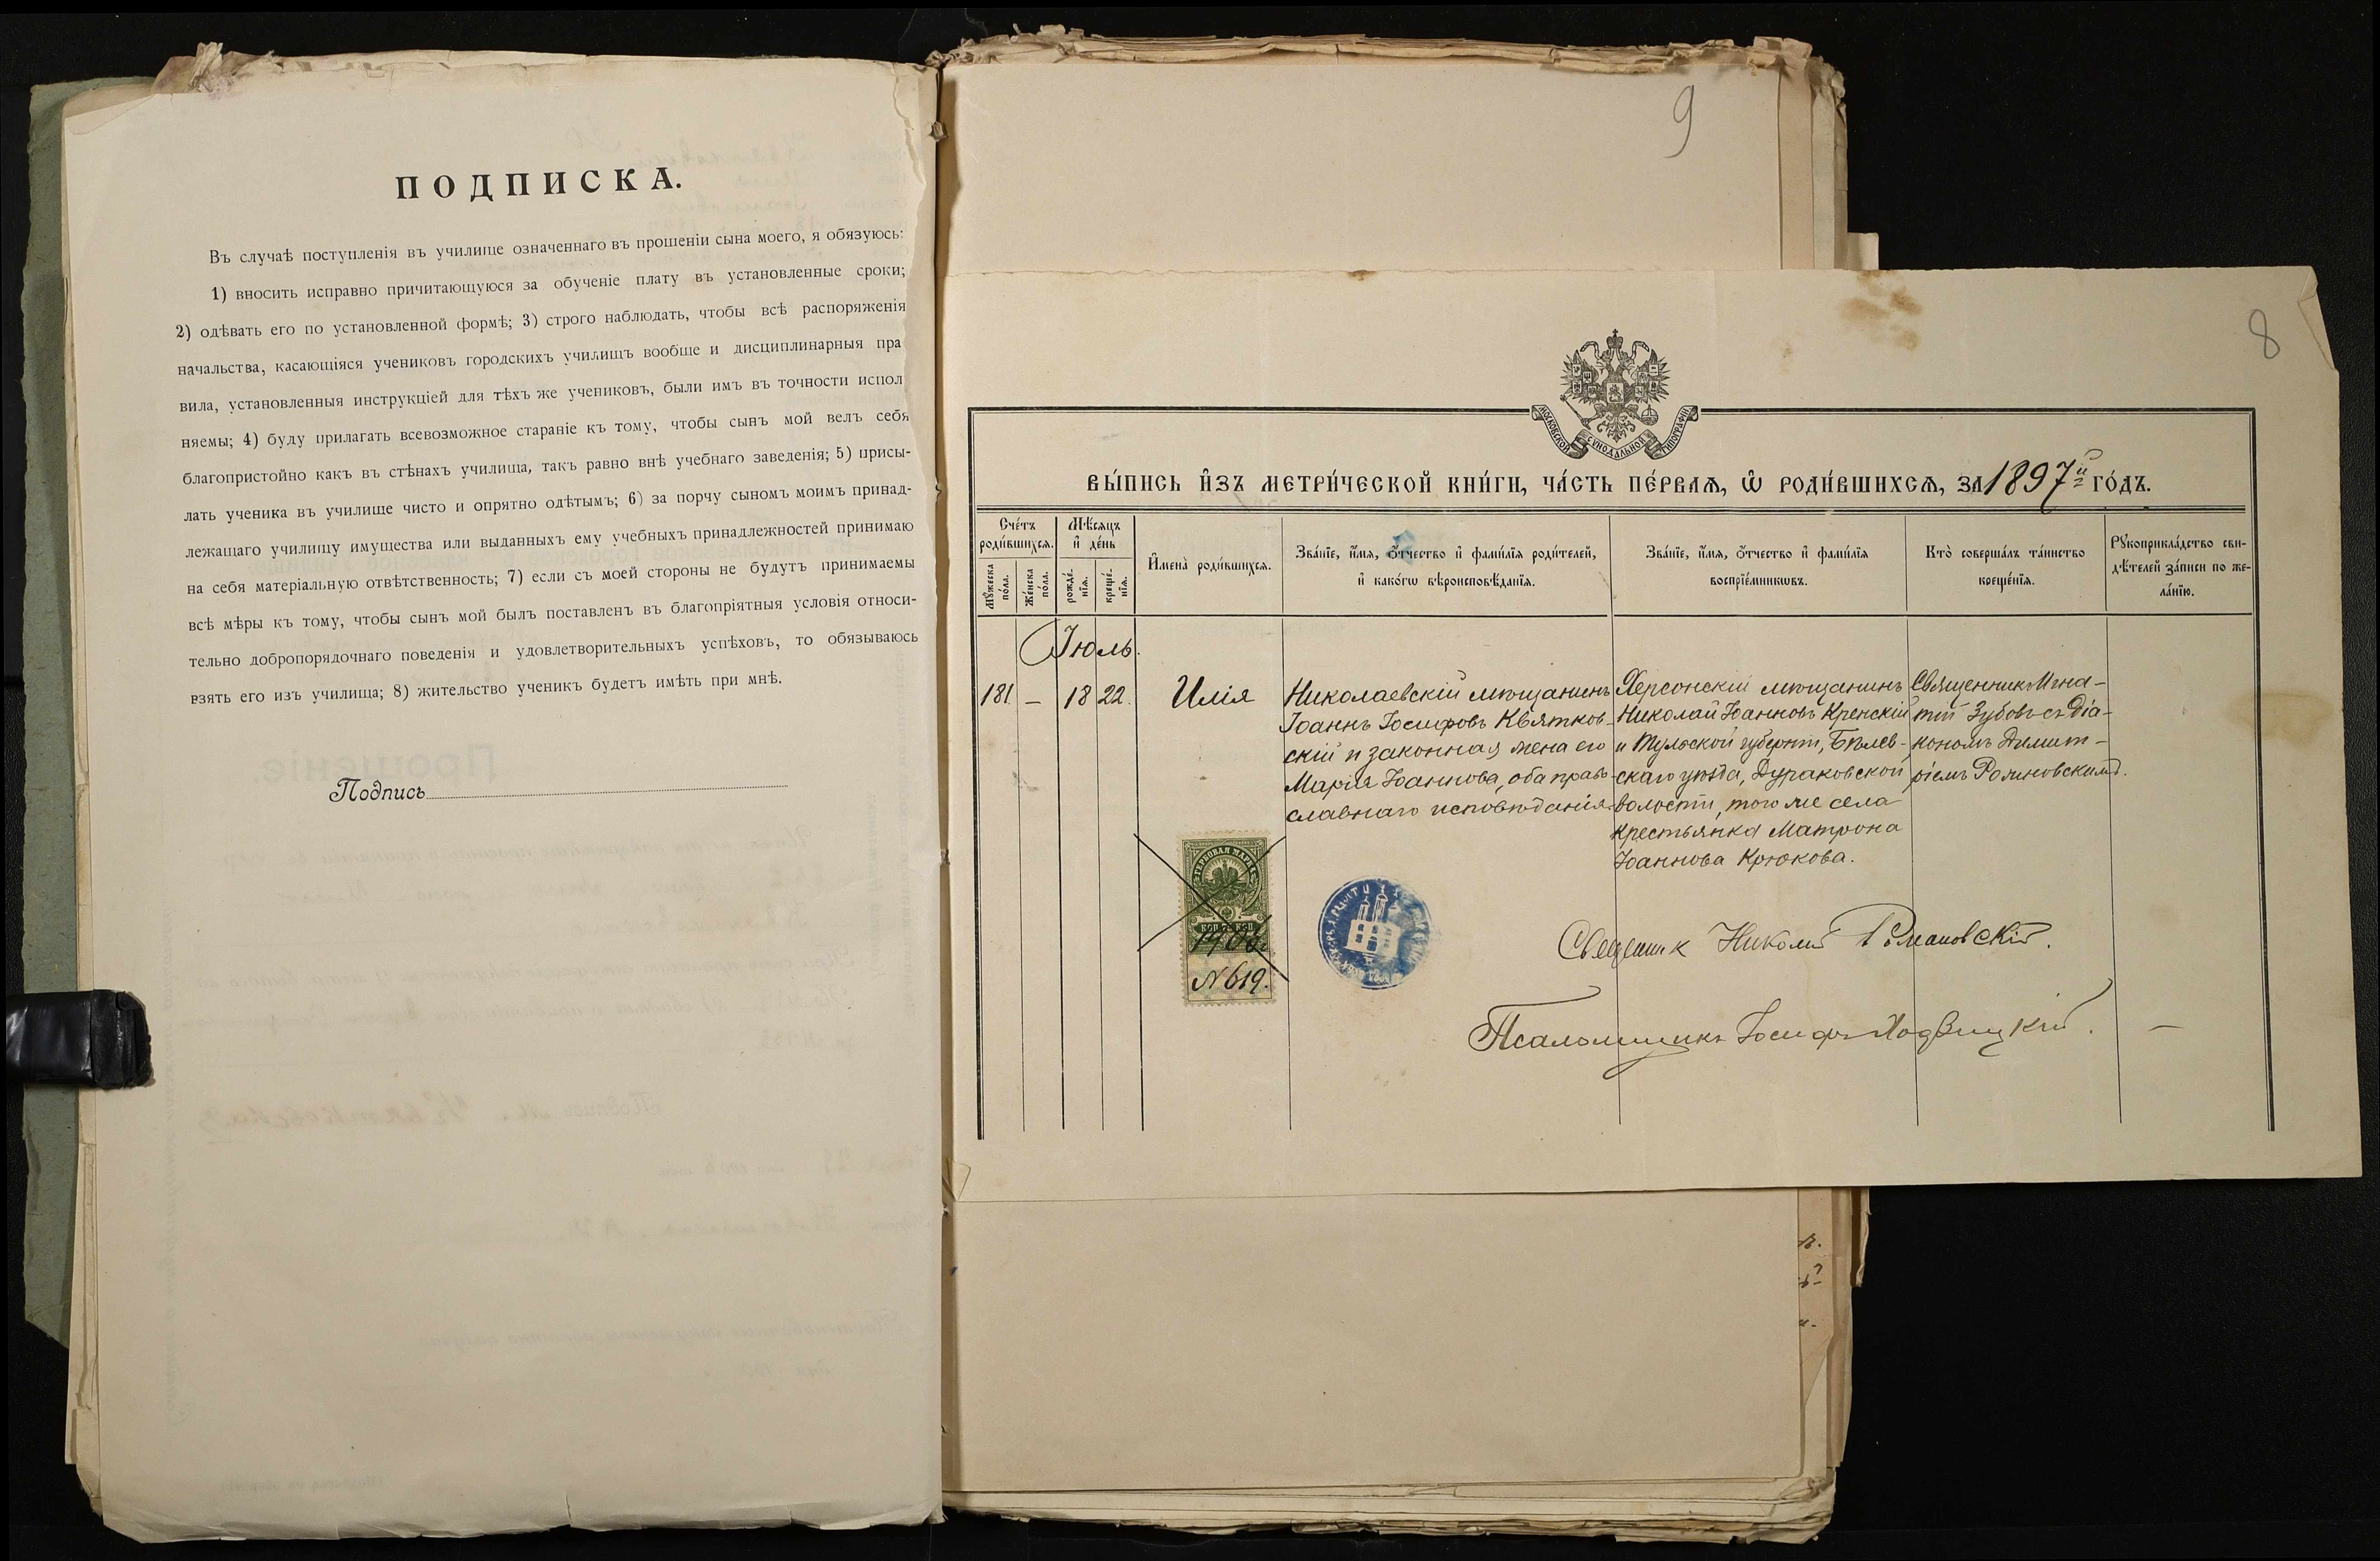 ПОДПИСКА.
Въ случаѣ поступленія въ училище означеннаго въ прошеніи сына моего, я обязуюсь:
1) вносить исправно причитающуюся за обученіе плату въ установленные сроки;
2) одѣвать его по установленной формѣ; 3) строго наблюдать, чтобы всѣ распоряженія
начальства, касающіяся учениковъ городскихъ училищъ вообще и дисциплинарныя пра
вила, установленныя инструкціей для тѣхъ же учениковъ, были имъ въ точности испол
няемы; 4) буду прилагать всевозможное стараніе къ тому, чтобы сынъ мой велъ себя
благопристойно какъ въ стѣнахъ училища, такъ равно внѣ учебнаго заведенія; 5) присы-
лать ученика въ училище чисто и опрятно одѣтымъ; 6) за порчу сыномъ моимъ принад-
лежащаго училищу имущества или выданныхъ ему учебныхъ принадлежностей принимаю
на себя матеріальную отвѣтственность; 7) если съ моей стороны не будутъ принимаемы
всѣ мѣры къ тому, чтобы сынъ мой былъ поставленъ въ благопріятныя условія относи-
тельно добропорядочнаго поведенія и удовлетворительныхъ успѣховъ, то обязываюсь
взять его изъ училища; 8) жительство ученикъ будетъ имѣть при мнѣ.
Подпись
9
8
МОСКОВСКОЙ СѴНОДАЛЬНОЙ ТИПОГРАФІИ
ВЫ́ПИСЬ И҆ЗЪ МЕТРИ́ЧЕСКОЙ КНИ́ГИ, ЧА́СТЬ ПЕ́РВАѦ, Ѡ҆ РОДИ́ВШИХСѦ, ЗА 1897й ГО́ДЪ.
Сче́тъ роди́вшихсѧ.
Мꙋ́жеска по́ла.
Же́нска по́ла.
Мѣ́сѧцъ и҆ де́нь
рожде́нїѧ.
креще́нїѧ.
И҆мена̀ роди́вшихсѧ.
Зва́нїе, и҆́мѧ, ѻ҆́тчество и҆ фами́лїѧ роди́телей,
и҆ како́гѡ вѣроисповѣ́данїѧ.
Зва́нїе, и҆́мѧ, ѻ҆́тчество и҆ фами́лїѧ
воспрїе́мникѡвъ.
Кто̀ соверша́лъ та́инство
креще́нїѧ.
Рꙋкоприкла́дство сви-
дѣ́телей за́писи по же-
ла́нїю.
Іюль.
181.
—
18
22.
Илія
Николаевскій мѣщанинъ
Іоаннъ Іосифовъ Квятков-
скій и законная жена его
Марія Іоаннова, оба право-
славнаго исповѣданія.
Херсонскій мѣщанинъ
Николай Іоанновъ Кренскій
и Тульской губерніи, Бѣлев-
скаго уѣзда, Дураковской
волости, того же села
крестьянка Матрона
Іоаннова Крюкова.
Священникъ Игна-
тій Зубовъ съ Діа-
кономъ Димит-
ріемъ Розиновскимъ.
ГЕРБОВАЯ МАРКА
КОП. 75 КОП.
1903
№ 619.
Священникъ Николай Романовскій.
Псаломщикъ Іосифъ Ходвицкій.
—